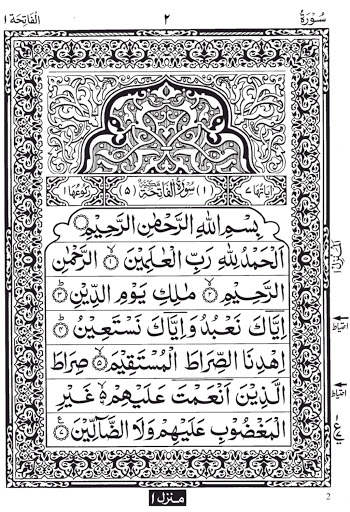 سُوْرَةُ ٢ اَلْفَاتِحَة ١
اٰيَاتُهَا ٧ (١) سُوْرَةُ الْفَاتِحَةِ مَكِّيَّةٌ (٥) رُكُوْعُهَا ١
بِسْمِ اللهِ الرَّحْمٰنِ الرَّحِيْمِ
اَلْحَمْدُ لِلّٰهِ رَبِّ الْعٰلَمِيْنَ ۙ﴿١﴾ الرَّحْمٰنِ
الرَّحِيْمِ ۙ﴿٢﴾ مٰلِكِ يَوْمِ الدِّيْنِ ؕ﴿٣﴾
اِيَّاكَ نَعْبُدُ وَاِيَّاكَ نَسْتَعِيْنُ ؕ﴿٤﴾
اِهْدِنَا الصِّرَاطَ الْمُسْتَقِيْمَ ۙ﴿٥﴾ صِرَاطَ
الَّذِيْنَ اَنْعَمْتَ عَلَيْهِمْ ۙ﴿٦﴾ غَيْرِ
الْمَغْضُوْبِ عَلَيْهِمْ وَلَا الضَّآلِّيْنَ ﴿٧﴾
اَلْمَنْزِل ١
احتياط
احتياط
ع
منزل ١
2